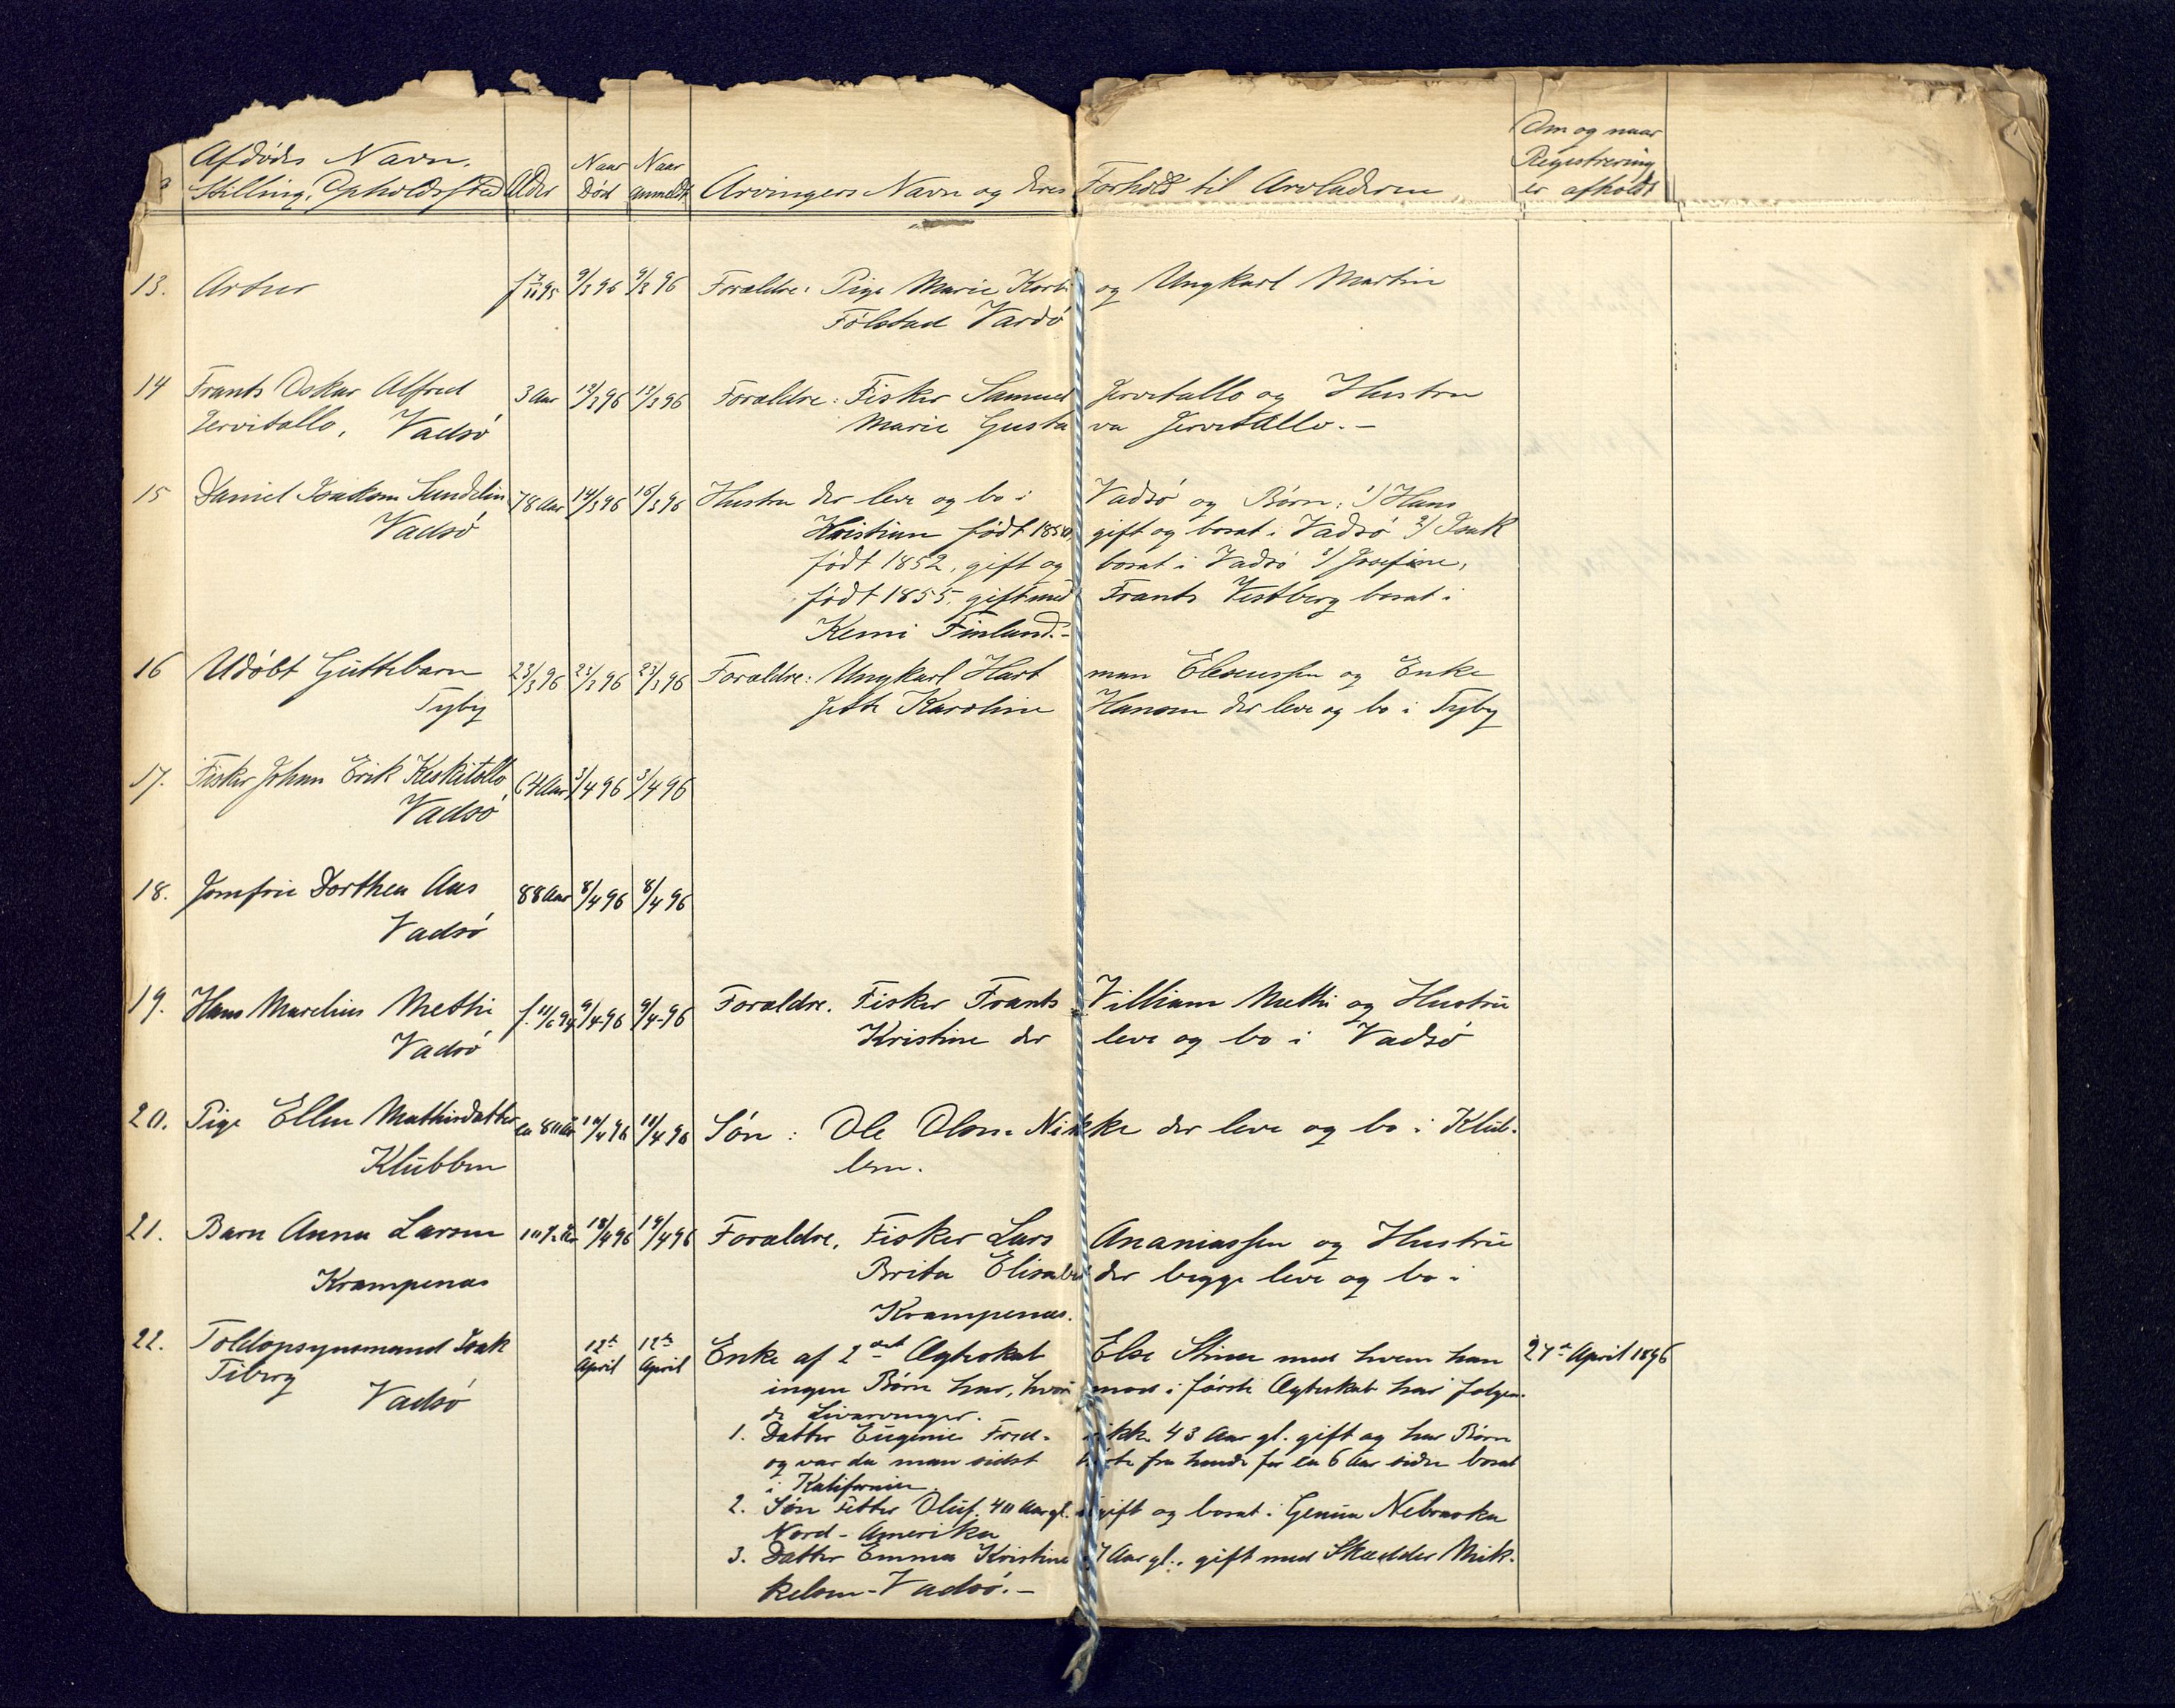 Afdødes Navn.
Stilling, Opholdssted
Alder
Naar
Død
Naar
anmeldt
Arvingers Navn og deres Forhold til Arveladeren
Om og naar
Registrering
er afholdt
13. Artur f 7/11 95 9/3 96 9/3 96 Forældre: Pige Marie og Ungkarl Martin
Følstad Vardø
14 Frants Oskar Alfred 3 Aar 12/3 96 12/3 96 Forældre: Fisker Samuel Jervitallo og Hustru
Jervitallo, Vadsø Marie Gustava Jervitallo. —
15 Daniel Isakson Sundelin 78 Aar 14/3 96 15/3 96 Hustru der leve og bo i Vadsø og Børn: 1) Hans
Vadsø Kristian født gift og bosat i Vadsø 2) Isak
født 1852, gift og bosat i Vadsø 3) Josefine,
født 1855, gift med Frants Vestberg bosat i
Kemi Finland. —
16 Udøbt Guttebarn 23/3 96 23/3 96 23/3 96 Forældre: Ungkarl Hartman Eleseussen og Enke
Tyby Jette Karoline Hansen der leve og bo i Tyby
17. Fisker Johan Erik Keskitallo 64 Aar 3/4 96 3/4 96
Vadsø
18. Jomfru Dorthea Aas 88 Aar 8/4 96 8/4 96
Vadsø
19. Hans Marelius Metti f. 11/6 94 9/4 96 9/4 96 Forældre. Fisker Frants Villiam Metti og Hustru
Vadsø Kristine der leve og bo i Vadsø
20. Pige Ellen Mathisdatter ca 80 Aar 10/4 96 11/4 96 Søn: Ole Olsen Nikke der leve og bo i Klub-
Klubben ben.
21. Barn Anna Larsen 10 1/2 Aar 18/4 96 19/4 96 Forældre, Fisker Lars Ananiassen og Hustru
Krampenæs Brita Elisabet der begge leve og bo i
Krampenæs.
22. Toldopsynsmand Isak 12te April 12te April Enke af 2det Ægteskab Else Stina med hvem han 27de April 1896
Tiberg ingen Børn har, hvorimod i første Ægteskab har følgen-
Vadsø de Livsarvinger.
1. Datter Eugenie Fredrikke 43 Aar gl. gift og har Børn
og var da man sidst hørte fra hende for ca 6 Aar siden bosat
i Kalifornien.
2. Søn Petter Oluf. 40 Aar gl. ugift og bosat i Genua Nebraska
Nord-Amerika
3. Datter Emma Kristine Aar gl., gift med Skrædder Mik-
kelsen - Vadsø. —